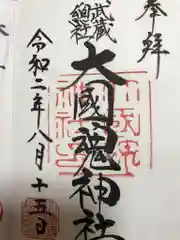 奉拝
武蔵
総社
大國魂神社
令和二年八月十五日